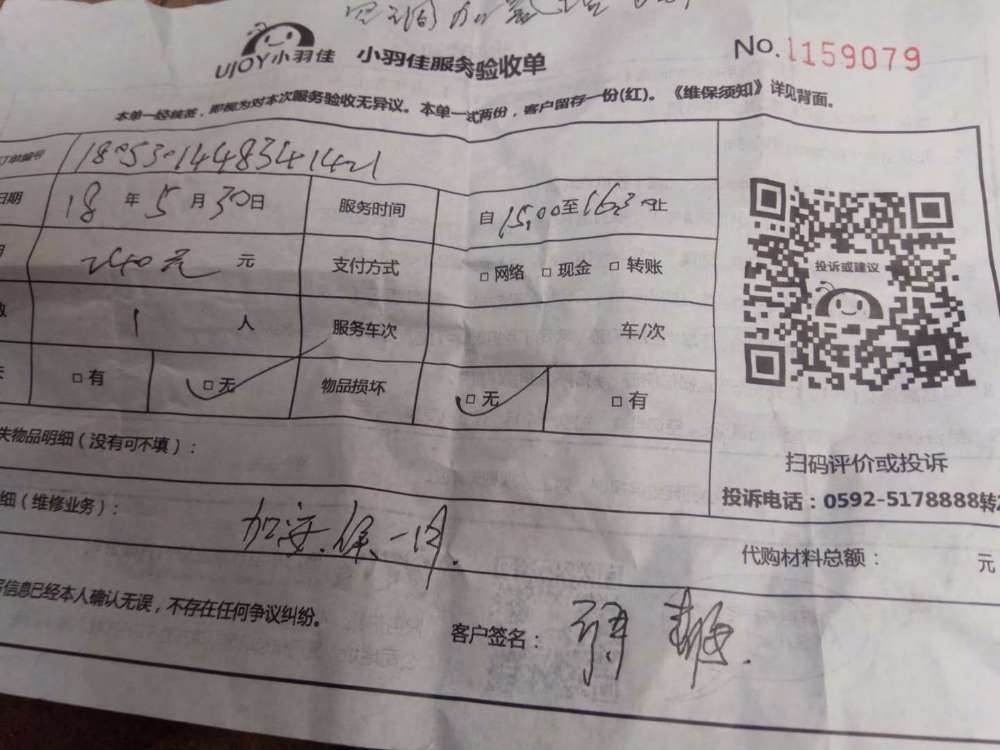 空调加氟
UJOY小羽佳 小羽佳服务验收单 No.1159079
本单一经核签，即视为对本次服务验收无异议。本单一式两份，客户留存一份(红)。《维保须知》详见背面。
订单编号 180530144834142
日期 18 年 5 月 30 日 服务时间 自 15:00 至 16:30 止
240元 元 支付方式 □网络 □现金 □转账
数 1 人 服务车次 车/次
□有 □无 物品损坏 □无 □有
失物品明细（没有可不填）：
细（维修业务）： 加 保一月.
投诉或建议
扫码评价或投诉
投诉电话：0592-5178888转
代购材料总额： 元
信息已经本人确认无误，不存在任何争议纠纷。
客户签名：